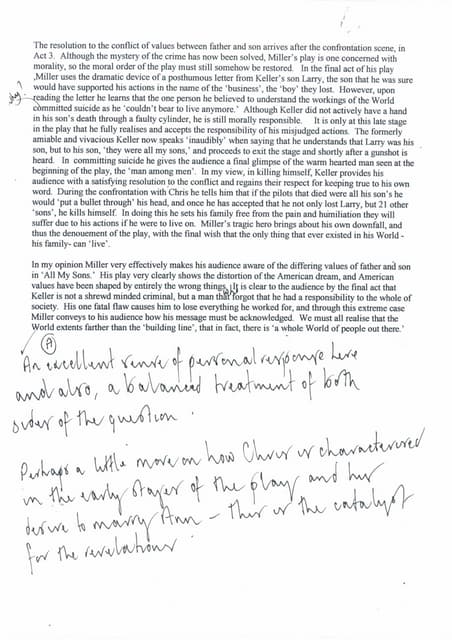 The resolution to the conflict of values between father and son arrives after the confrontation scene, in
Act 3. Although the mystery of the crime has now been solved, Miller's play is one concerned with
morality, so the moral order of the play must still somehow be restored. In the final act of his play
,Miller uses the dramatic device of a posthumous letter from Keller's son Larry, the son that he was sure
would have supported his actions in the name of the 'business', the 'boy' they lost. However, upon
reading the letter he learns that the one person he believed to understand the workings of the World
committed suicide as he 'couldn't bear to live anymore.' Although Keller did not actively have a hand
in his son's death through a faulty cylinder, he is still morally responsible. It is only at this late stage
in the play that he fully realises and accepts the responsibility of his misjudged actions. The formerly
amiable and vivacious Keller now speaks 'inaudibly' when saying that he understands that Larry was his
son, but to his son, 'they were all my sons,' and proceeds to exit the stage and shortly after a gunshot is
heard. In committing suicide he gives the audience a final glimpse of the warm hearted man seen at the
beginning of the play, the 'man among men'. In my view, in killing himself, Keller provides his
audience with a satisfying resolution to the conflict and regains their respect for keeping true to his own
word. During the confrontation with Chris he tells him that if the pilots that died were all his son's he
would 'put a bullet through' his head, and once has accepted that he not only lost Larry, but 21 other
'sons', he kills himself. In doing this he sets his family free from the pain and humiliation they will
suffer due to his actions if he were to live on. Miller's tragic hero brings about his own downfall, and
thus the denouement of the play, with the final wish that the only thing that ever existed in his World -
his family- can 'live'.
In my opinion Miller very effectively makes his audience aware of the differing values of father and son
in 'All My Sons.' His play very clearly shows the distortion of the American dream, and American
values have been shaped by entirely the wrong things. It is clear to the audience by the final act that
Keller is not a shrewd minded criminal, but a man that forgot that he had a responsibility to the whole of
society. His one fatal flaw causes him to lose everything he worked for, and through this extreme case
Miller conveys to his audience how his message must be acknowledged. We must all realise that the
World extends farther than the 'building line', that in fact, there is 'a whole World of people out there.'
A
An excellent sense of personal response here
and also, a balanced treatment of both
sides of the question.
Perhaps a little more on how Chris is characterised
in the early stages of the play and his
desire to marry Ann - this is the catalyst
for the revelations